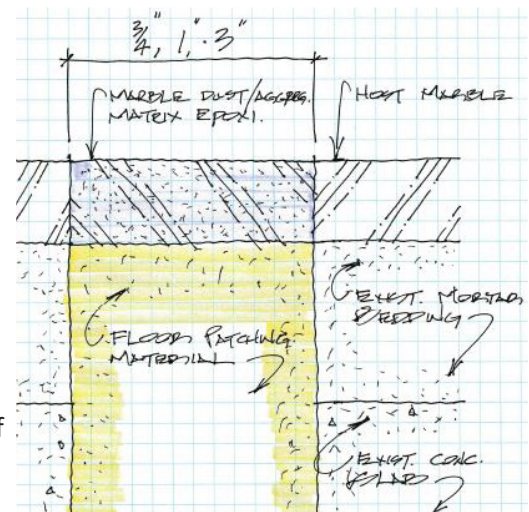 3/4", 1", 3"
MARBLE DUST/AGGREG.
MATRIX EPOXI.
HOST MARBLE
EXIST. MORTAR
BEDDING
FLOOR PATCHING
MATERIAL
f
EXIST. CONC.
SLAB